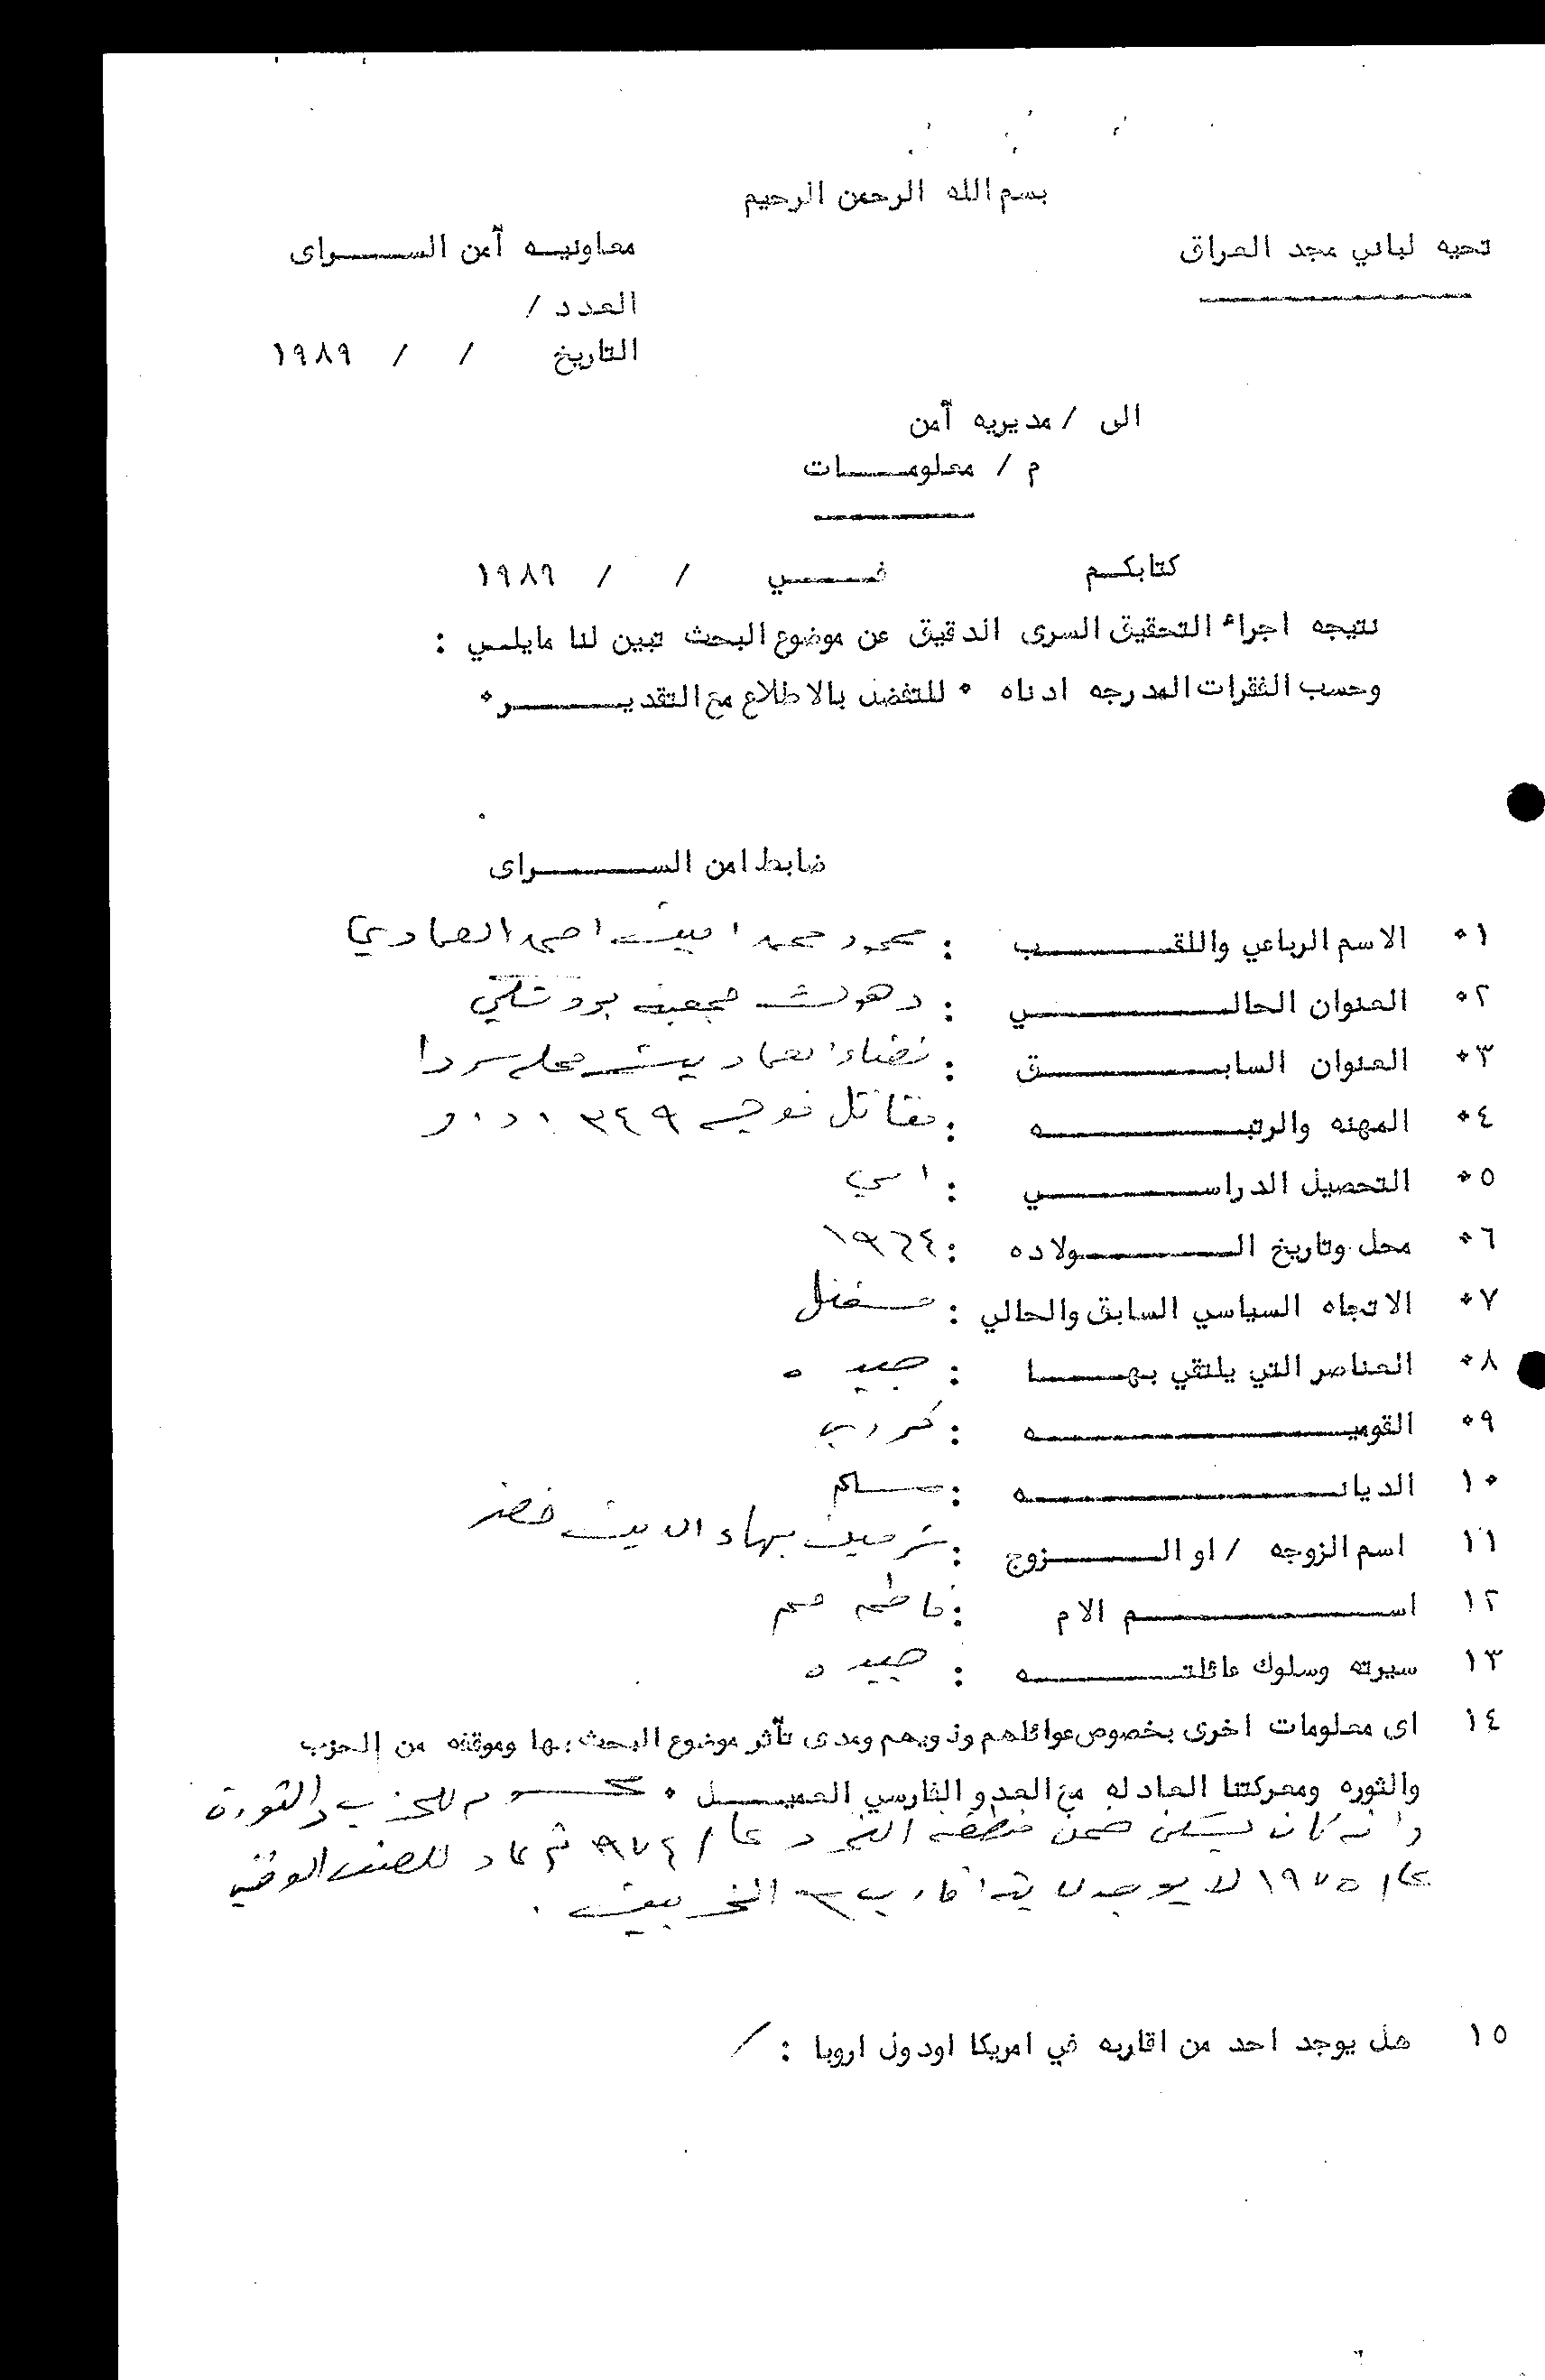 بسم الله الرحمن الرحيم
تحيه لباني مجد العراق
معاونيه أمن الســـــراى
العدد /
التاريخ / / ١٩٨٩
الى / مديريه أمن
م / معلومـــات
كتابكم فـــي / / ١٩٨٩
نتيجه اجراء التحقيق السرى الدقيق عن موضوع البحث تبين لنا مايلي :
وحسب الفقرات المدرجه ادناه • للتفضل بالاطلاع مع التقديـــــر•
ضابط امن الســـــراى
١• الاسم الرباعي واللقـــــب : محمود محمد امين احمد العمادي
٢• العنوان الحالـــــي : دهوك مجمع بروشكي
٣• العنوان السابـــــق : قضاء العمادية محله سردا
٤• المهنه والرتبـــــه : مقاتل فوج ٣٤٩ د٠و
٥• التحصيل الدراســـــي : امي
٦• محل وتاريخ الـــــولاده : ١٩٦٤
٧• الاتجاه السياسي السابق والحالي : مستقل
٨• العناصر التي يلتقي بهـــا : جيده
٩• القوميـــــه : كردي
١٠• الديانـــــه : مسلم
١١ اسم الزوجه / او الـــــزوج : نرمين بهاء الدين خضر
١٢ اســـــم الام : فاطمه
١٣ سيرته وسلوك عائلتـــــه : جيده
١٤ اى معلومات اخرى بخصوص عوائلهم وذويهم ومدى تأثر موضوع البحث بها وموقفه من الحزب
والثوره ومعركتنا العادله مع العدو الفارسي العميـــل • للحزب والثورة
وانه كان يسكن ضمن منطقه التمرد عام ٩٧٤ ثم عاد للصف الوطني
عام ١٩٧٥ لا يوجد لديه اقارب من المخربين .
١٥ هل يوجد احد من اقاربه في امريكا اودول اروبا : /